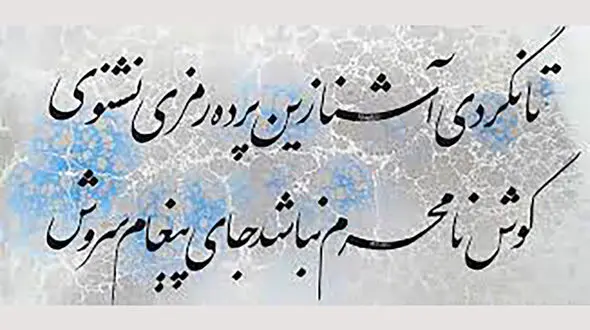 تا نگردی آشنا زین پرده رمزی نشنوی
گوش نامحرم نباشد جای پیغام سروش